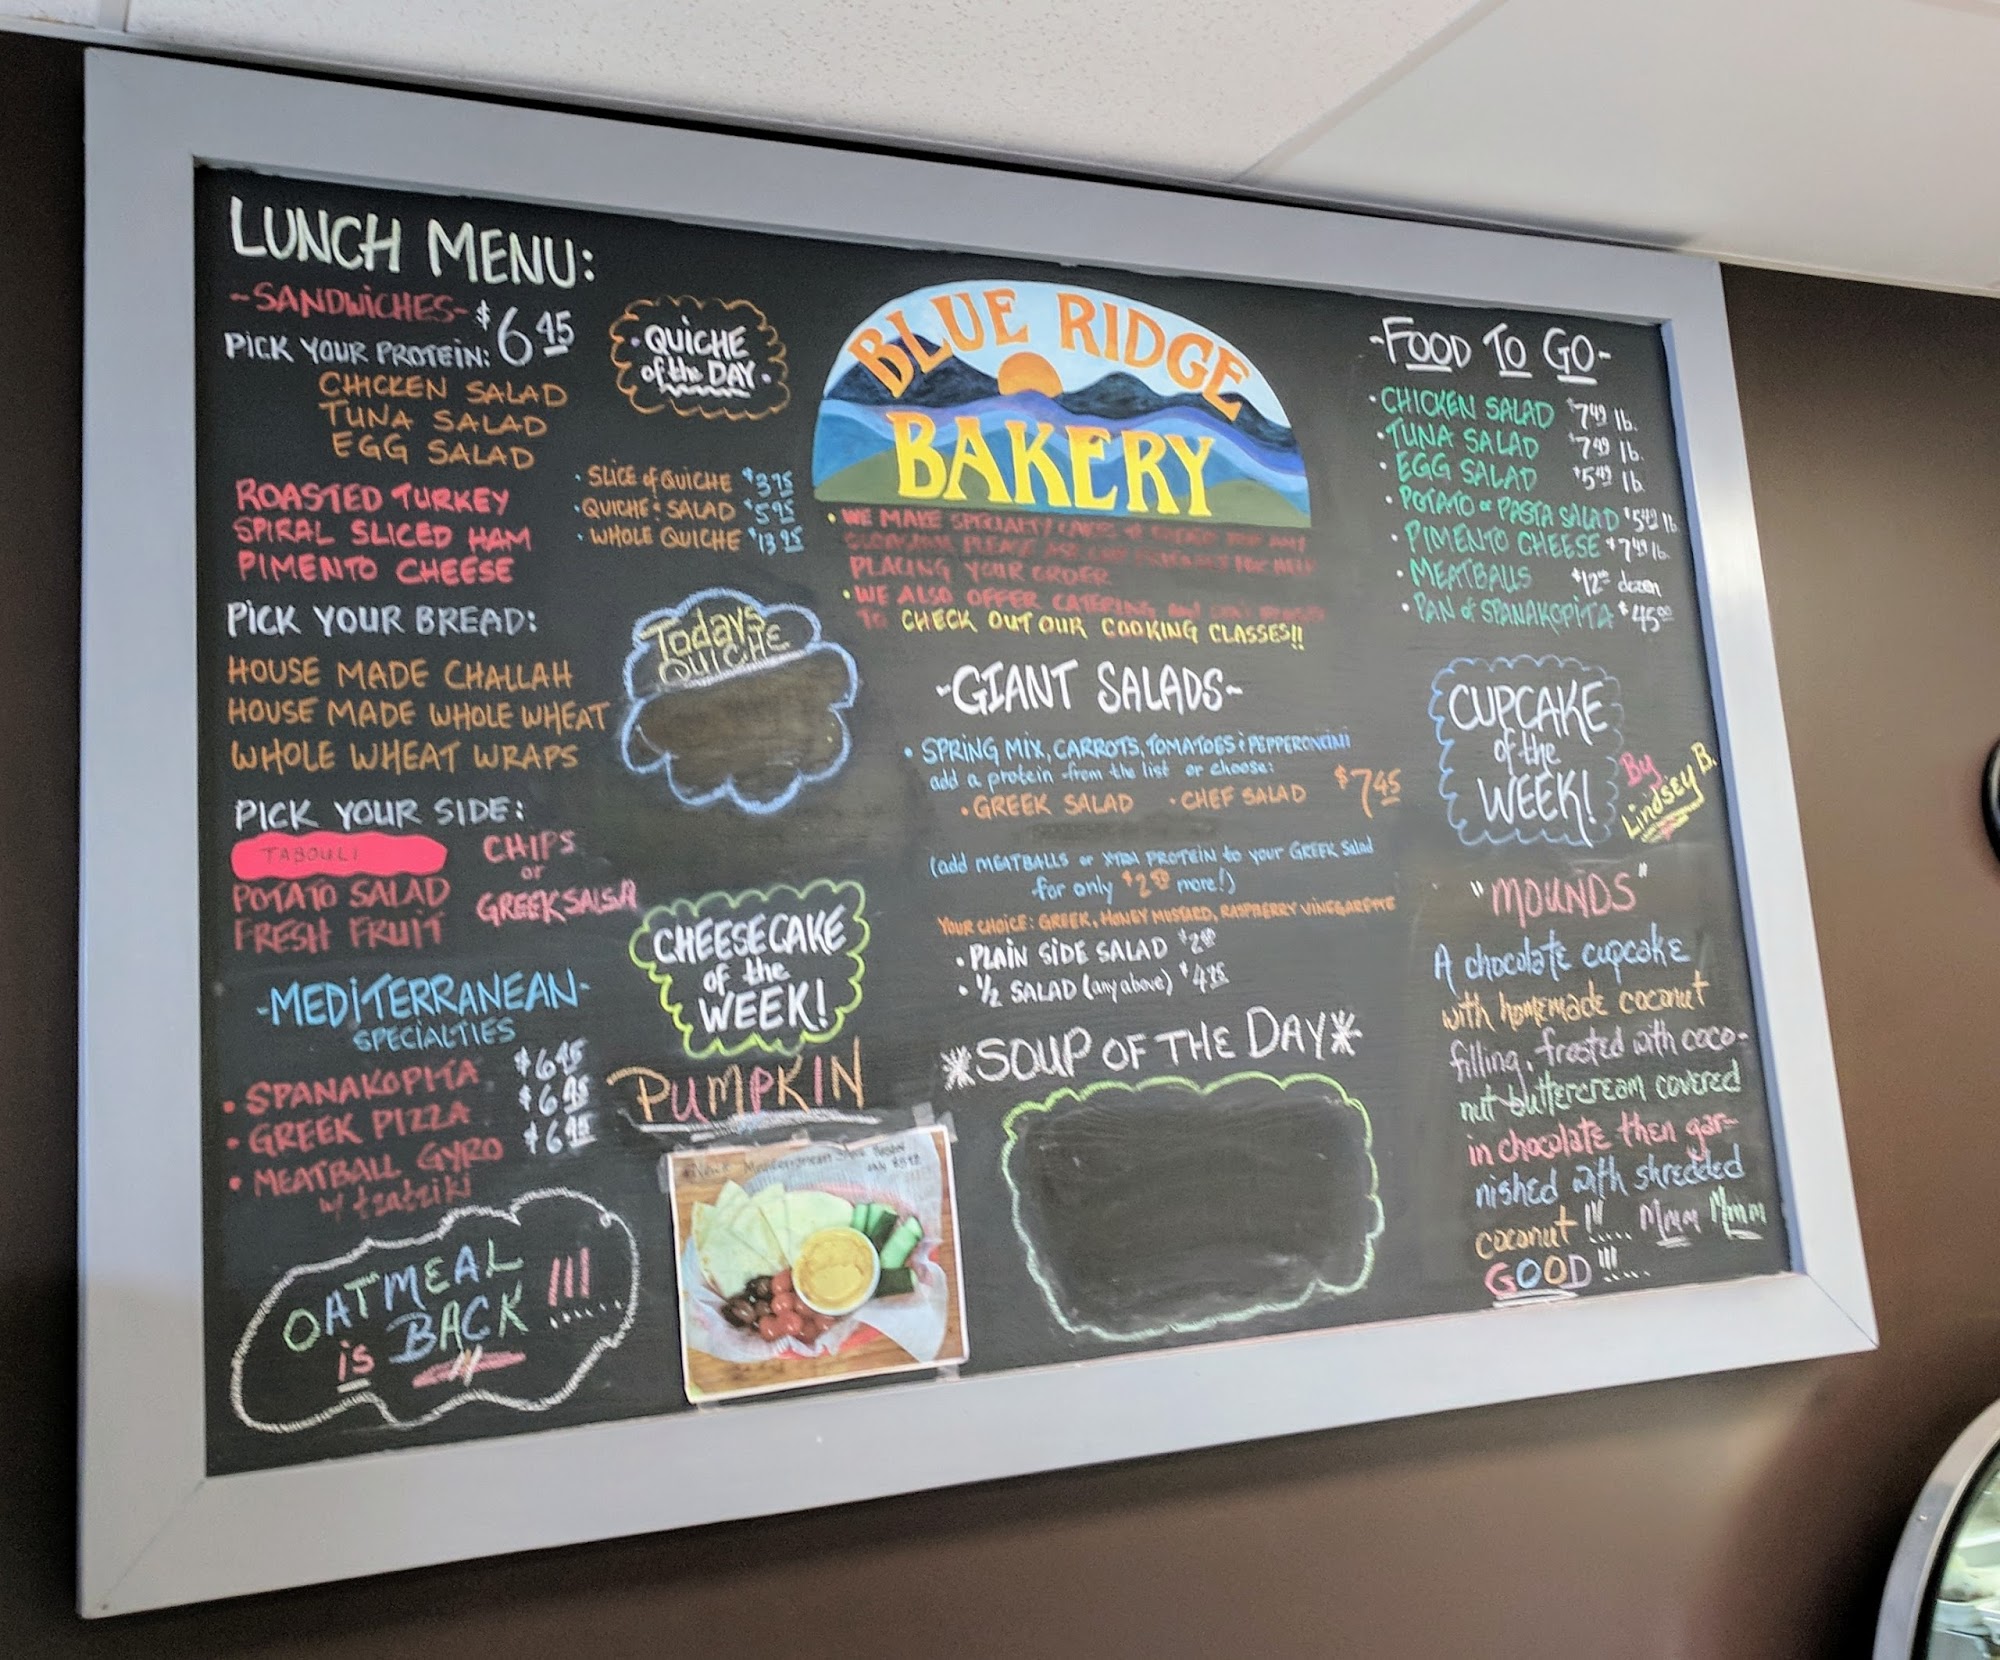 LUNCH MENU:
-SANDWiCHES- $6 45
PiCK YOUR PROTEiN:
CHICKEN SALAD
TUNA SALAD
EGG SALAD
ROASTED TURKEY
SPIRAL SLICED HAM
PIMENTO CHEESE
PiCK YOUR BREAD:
HOUSE MADE CHALLAH
HOUSE MADE WHOLE WHEAT
WHOLE WHEAT WRAPS
PICK YOUR SIDE:
TABOULI
POTATO SALAD
FRESH FRUIT
CHIPS
or
GREEK SALSA
-MEDiTERRANEAN-
SPECIALTIES
• SPANAKOPITA $6 45
• GREEK PIZZA $6 95
• MEATBALL GYRO $6 45
w/ tzatziki
OATMEAL
is BACK !!!.....
QUiCHE
of the DAY
• SLICE of QUICHE $3 75
• QUICHE & SALAD $5 95
• WHOLE QUICHE $13 95
Todays
QUICHE
CHEESECAKE
of the
WEEK!
PUMPKIN
Mediterranean
BLUE RIDGE
BAKERY
• WE MAKE SPECIALTY CAKES
PLACING YOUR ORDER
• WE ALSO OFFER CATERING
TO CHECK OUT OUR COOKING CLASSES!!
-GIANT SALADS-
• SPRING MIX, CARROTS, TOMATOES & PEPPERONCINI
add a protein from the list or choose:
• GREEK SALAD • CHEF SALAD $7 45
(add MEATBALLS or XTRA PROTEIN to your GREEK Salad
for only $2 50 more!)
YOUR CHOICE: GREEK, HONEY MUSTARD, RASPBERRY VINEGARETTE
• PLAIN SIDE SALAD $2 50
• 1/2 SALAD (any above) $4 75
*SOUP OF THE DAY*
-FOOD TO GO-
• CHICKEN SALAD $7 49 lb.
• TUNA SALAD $7 49 lb.
• EGG SALAD $5 49 lb.
• POTATO or PASTA SALAD $5 49 lb
• PIMENTO CHEESE $7 49 lb.
• MEATBALLS $12 00 dozen
• PAN of SPANAKOPITA $45 00
CUPCAKE
of the
WEEK!
By
Lindsey B.
"MOUNDS"
A chocolate cupcake
with homemade coconut
filling, frosted with coco-
nut buttercream covered
in chocolate then gar-
nished with shredded
coconut !!!..... Mmm Mmm
GOOD !!!.....